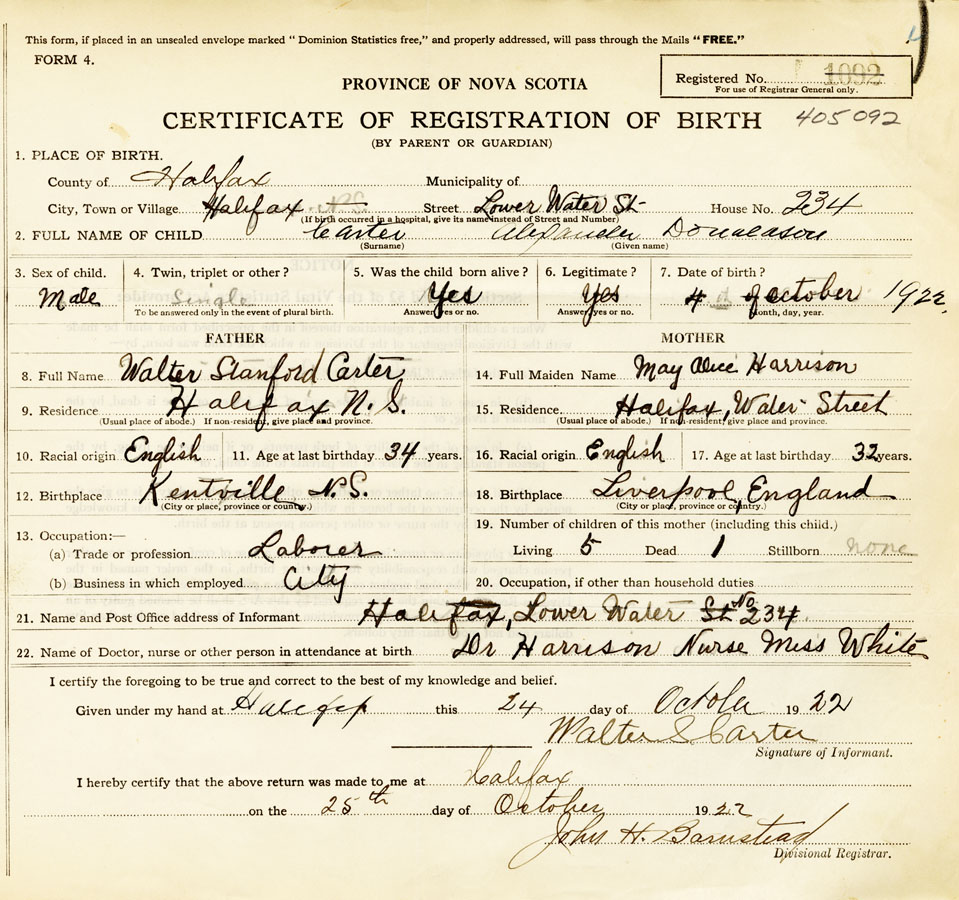 This form, if placed in an unsealed envelope marked “ Dominion Statistics free,” and properly addressed, will pass through the Mails “ FREE.”
FORM 4.
Registered No. 1092
For use of Registrar General only.
PROVINCE OF NOVA SCOTIA
CERTIFICATE OF REGISTRATION OF BIRTH 405092
(BY PARENT OR GUARDIAN)
1. PLACE OF BIRTH.
County of Halifax Municipality of
City, Town or Village Halifax N.S. Street Lower Water St House No. 234
(If birth occurred in a hospital, give its name instead of Street and Number)
2. FULL NAME OF CHILD Carter Alexander Donaldson
(Surname) (Given name)
3. Sex of child. 4. Twin, triplet or other? 5. Was the child born alive? 6. Legitimate? 7. Date of birth?
Male Single Yes Yes 4 of october 1922
To be answered only in the event of plural birth. Answer yes or no. Answer yes or no. Month, day, year.
FATHER MOTHER
8. Full Name Walter Stanford Carter 14. Full Maiden Name May Alice Harrison
9. Residence Halifax N.S. 15. Residence. Halifax, Water Street
(Usual place of abode.) If non-resident, give place and province. (Usual place of abode.) If non-resident, give place and province.
10. Racial origin English 11. Age at last birthday 34 years. 16. Racial origin English 17. Age at last birthday 32 years.
12. Birthplace Kentville N.S. 18. Birthplace Liverpool, England
(City or place, province or country.) (City or place, province or country.)
13. Occupation:— 19. Number of children of this mother (including this child.)
(a) Trade or profession Laborer Living 5 Dead 1 Stillborn none
(b) Business in which employed City 20. Occupation, if other than household duties
21. Name and Post Office address of Informant Halifax, Lower Water St No 234
22. Name of Doctor, nurse or other person in attendance at birth Dr Harrison Nurse Miss White
I certify the foregoing to be true and correct to the best of my knowledge and belief.
Given under my hand at Halifax this 24 day of October 1922
Walter S Carter
Signature of Informant.
I hereby certify that the above return was made to me at Halifax
on the 25th day of October 1922
John H. Barnstead
Divisional Registrar.